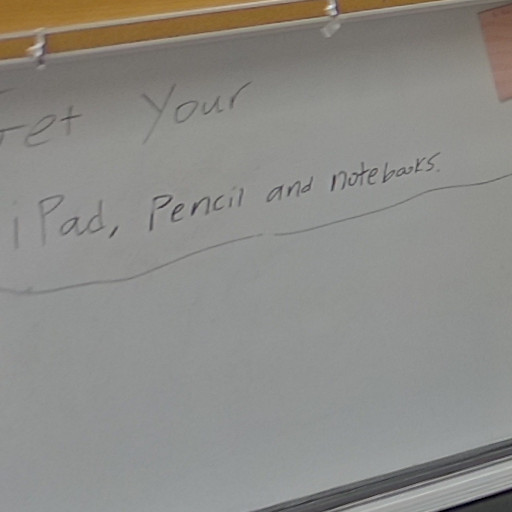 Get Your
iPad, Pencil and notebooks.